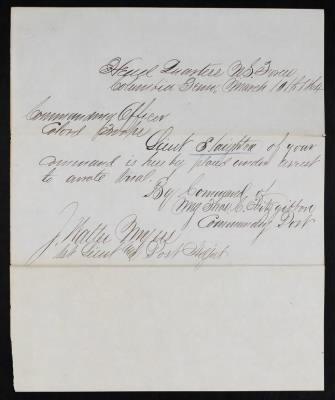 Head Quarters U.S. Forces
Columbia Tenn, March 10th 1864
Commanding Officer
Cold Troops
Lieut Slaughter of your
command is hereby placed under arrest
to await trial.
By Command of
Maj Thos. C. Fitzgibbon
Commandg Post
J. Walter
1st Lieut & Post Adjt